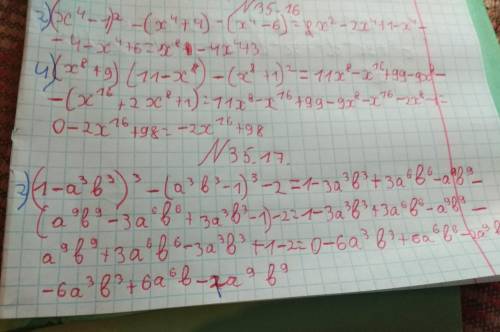 N35.16
3) (x⁴-1)² -(x⁴+4) -(x⁴-6)=8x²-2x⁴+1-x⁴-
-4-x⁴+6=x⁸ -4x⁴+3
4) (x⁸+9) (11-x⁸)-(x⁸+1)²=11x⁸-x¹⁶+99-9x⁸-
-(x¹⁶+2x⁸+1)=11x⁸-x¹⁶+99-9x⁸-x¹⁶-2x⁸-1=
0-2x¹⁶+98=-2x¹⁶+98
N35.17.
2) (1-a³b³)³-(a³b³-1)³-2=1-3a³b³+3a⁶b⁶-a⁹b⁹-
(a⁹b⁹-3a⁶b⁶+3a³b³-1)-2=1-3a³b³+3a⁶b⁶-a⁹b⁹-
a⁹b⁹+3a⁶b⁶-3a³b³+1-2=0-6a³b³+6a⁶b⁶-2a⁹b⁹
-6a³b³+6a⁶b-2a⁹b⁹